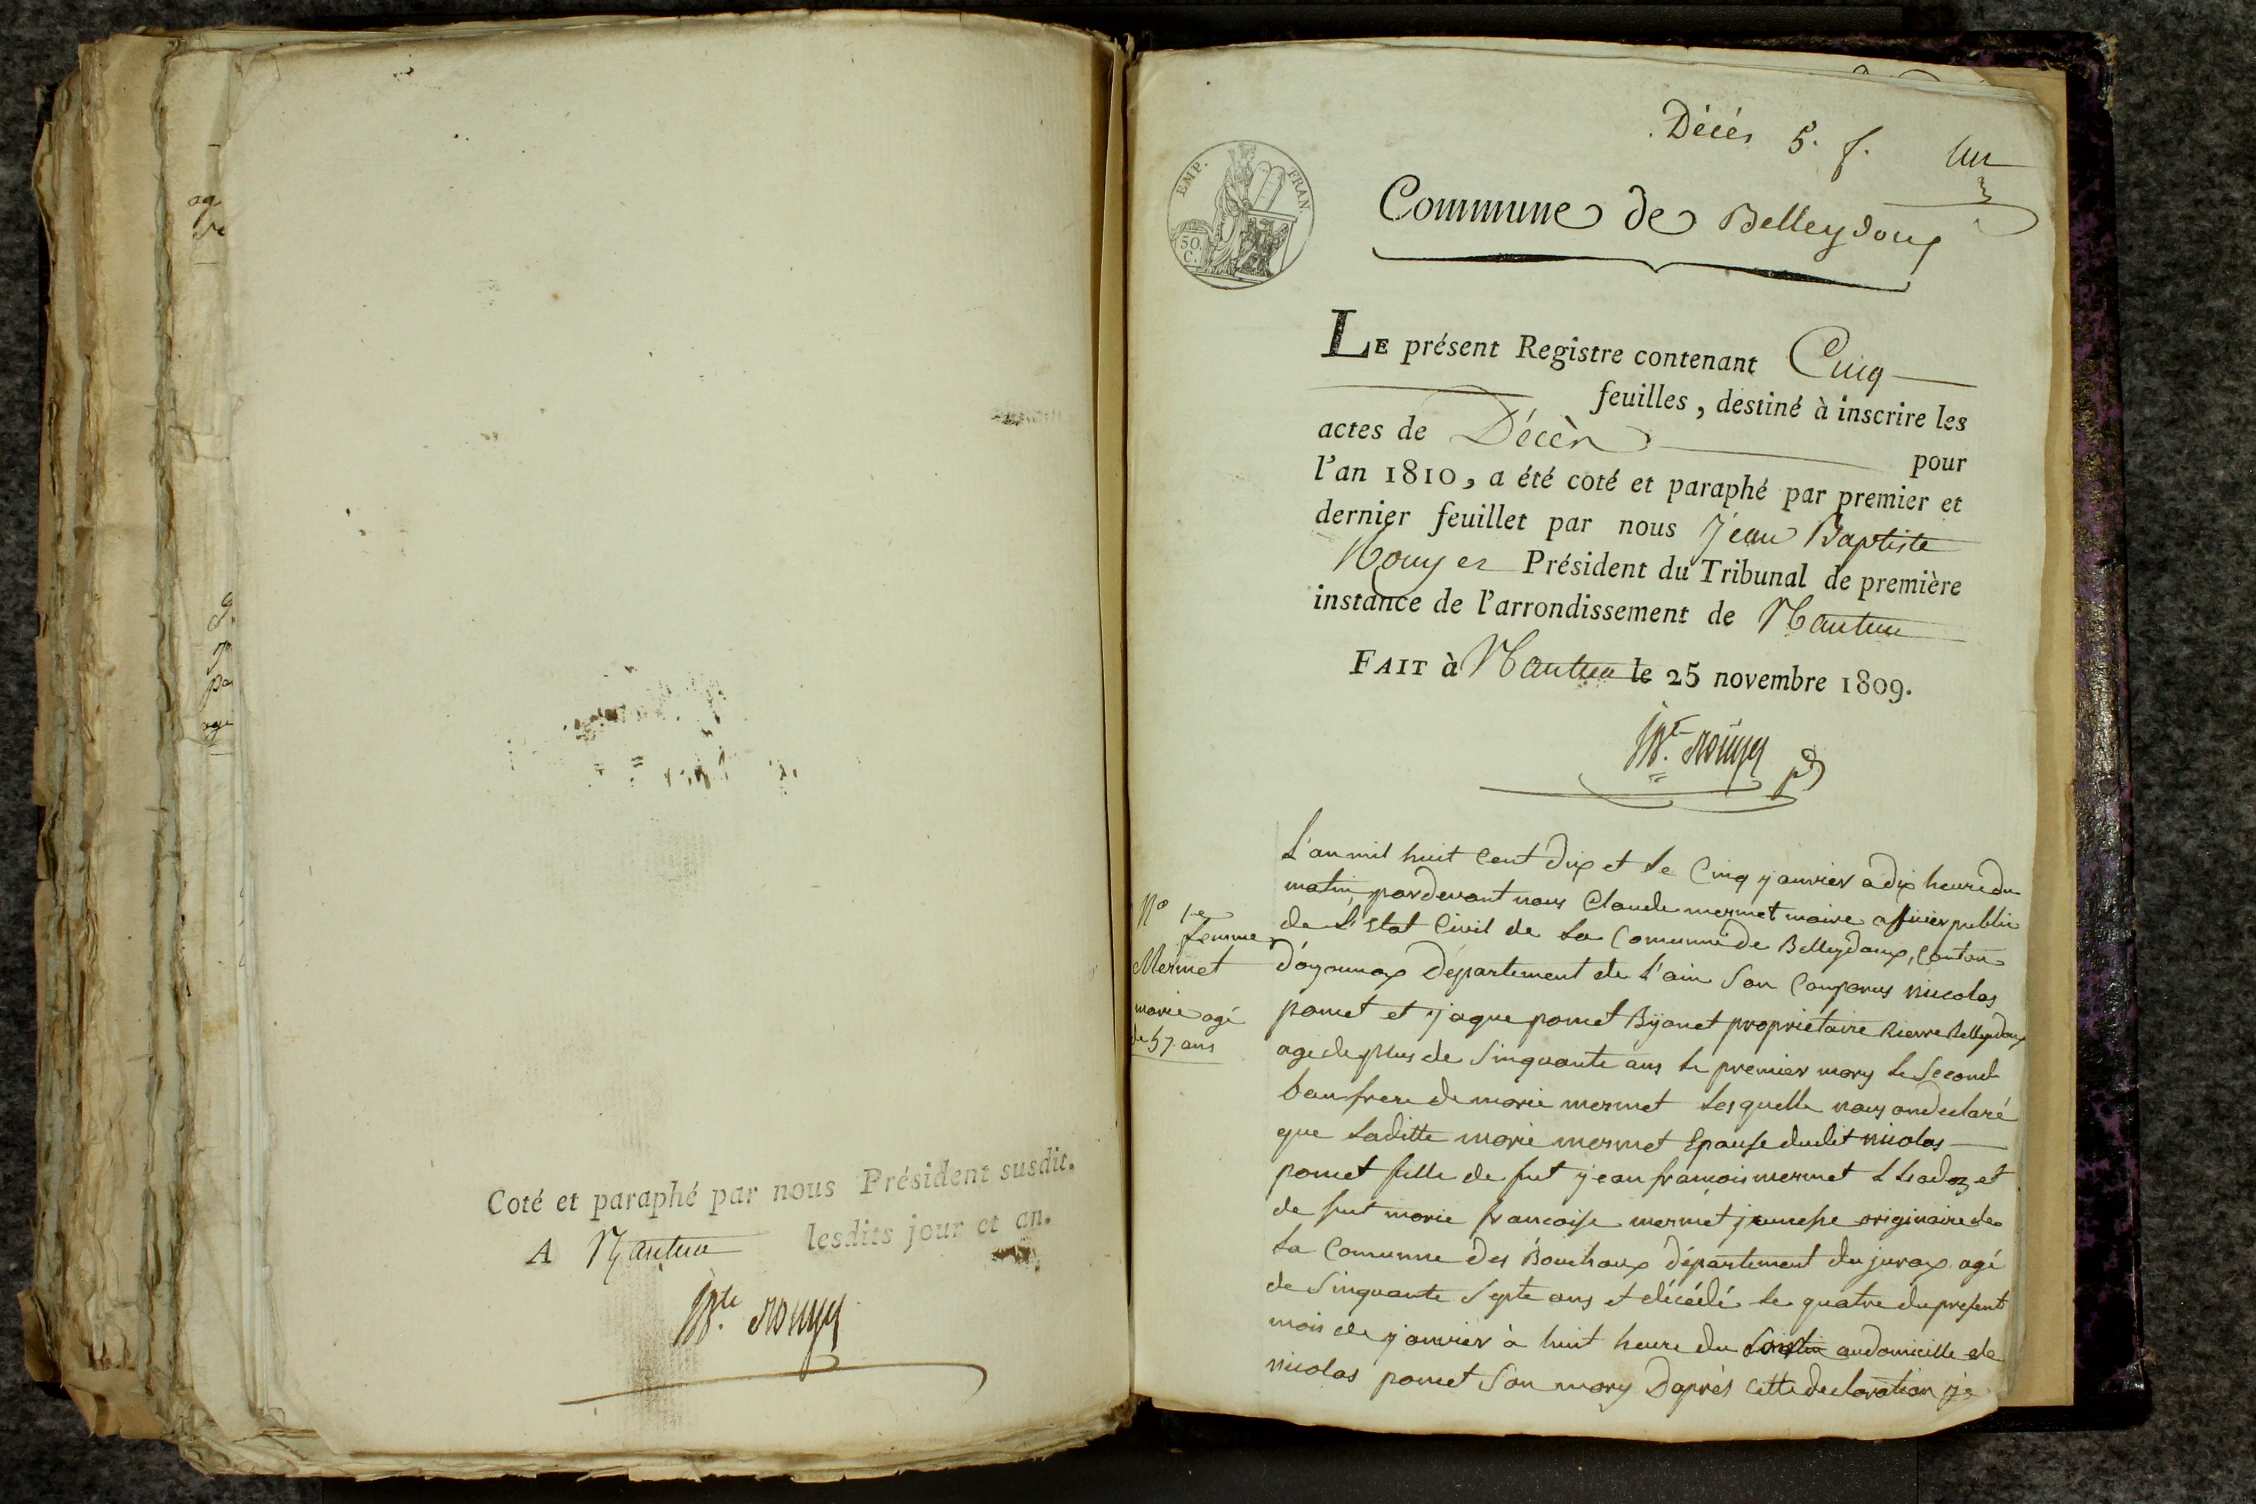 Coté et paraphé par nous Président susdit.
A Nantua lesdits jour et an.
Décés 5. f. un
EMP. FRAN.
50. C.
Commune de Belleydoux
LE présent Registre contenant Cinq
feuilles, destiné à inscrire les
actes de Décès pour
l'an 1810, a été coté et paraphé par premier et
dernier feuillet par nous Jean Baptiste
Rouyer Président du Tribunal de première
instance de l'arrondissement de Nantua
FAIT à Nantua le 25 novembre 1809.
No 1er
femme
Mermet
marie agé
de 57 ans
L'an mil huit Cent dix et le Cinq janvier a dix heure du
matin, pardevant nous Claude mermet maire officier public
de L'Etat Civil de la Comunne de Belleydoux, Canton
d'oyonnax Département de L'ain Son Comparus nicolas
pomet et jaque pomet Byonet propriétaire Belleydoux
age de plus de Sinquante ans le premier mary le Second
beaufrere de marie mermet Lesquelle nous on declaré
que Laditte marie mermet Epouse dudit nicolas
pomet fille de fut jean francois mermet et
de fut marie francoise mermet jeunesse originaire de
la Comunne des Bouchoux département du jurax agé
de Sinquante Septe ans et décédé le quatre du present
mois de janvier à huit heure du au domicille de
nicolas pomet Son mary D'aprés Cette declaration je